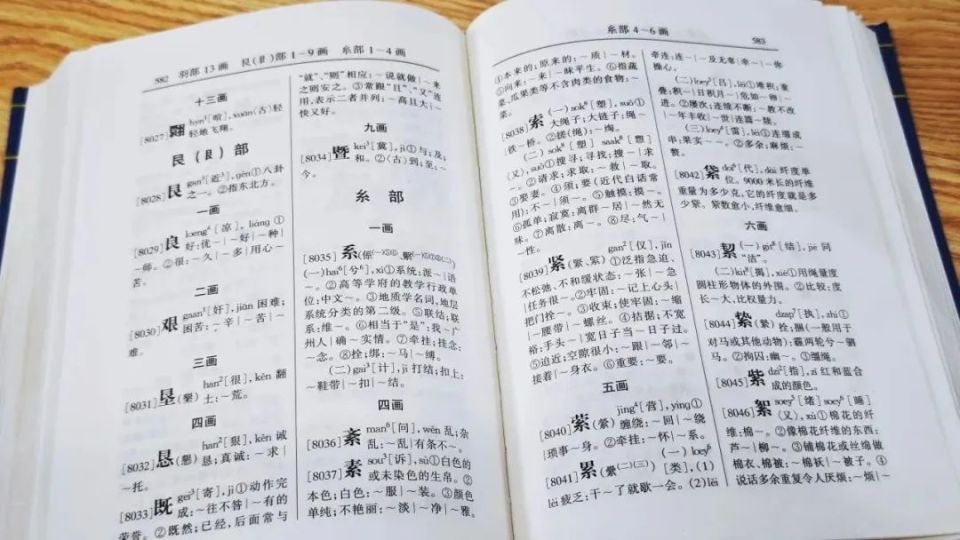 582 羽部 13画 艮(⻏)部 1~9画 糸部 1~4画
十三画
[8027] 翾 hyn¹[喧], xuān(古)轻
轻地飞翔。
艮(⻏)部
[8028] 艮 gen³[近³], gèn①八卦
之一。②指东北方。
一画
[8029] 良 loeng⁴[凉], liáng①
好:优~|~好|~种|
~师。②很:~久|~多|用心~
苦。
二画
[8030] 艰 gaan¹[奸], jiān 困难;
困苦:~辛|~苦|~
难。
三画
[8031] 垦(墾) han²[很], kěn 翻
土:~荒。
四画
[8032] 恳(懇) han²[狠], kěn 诚
恳;真诚:~求|
~托。
[8033] 既 gei³[寄], jì①动作完
成:~往不咎|~有的
荣誉。②既然;已经,后面常与
“就”、“则”相应:~说就做|~来
之则安之。③常跟“且”、“又”连
用,表示二者并列:~高且大|~
快又好。
九画
[8034] 暨 kei³[冀], jì①与;及;
和。②(古)到;至:~
今。
糸部
一画
[8035] 系
(一)hai⁶[兮⁶], xì①系统:派~|语
~。②高等学府的教学行政单
位:中文~。③地质学名词,地层
系统分类的第二级。④联结;联
系:维~。⑥相当于“是”:我~广
州人|确~实情。⑦牵挂:挂念:
~念。⑧拴;绑:~马|~缚。
(二)gai³[计], jì 打结;扣上:
~鞋带|~扣|~结。
四画
[8036] 紊 man⁶[问], wěn 乱;杂
乱:~乱|有条不~。
[8037] 素 sou³[诉], sù①白色的
或未染色的生帛。②
本色;白色:~服|~装。③颜色
单纯;不艳丽:~淡|~净|~雅。
糸部 4~6画 583
④本来的;原来的:~质|~材。
⑤向来:~来|~昧平生。⑥指蔬
菜、瓜果类等不含肉类的食物:~
菜。
[8038] 索 (一)sok³[塑], suǒ①
大绳子;大链子:绳~|
铁~桥。②搜(绳):~绹。
(二)sok³[塑] saak³
(又), suǒ①搜寻;寻找:搜~|求
~。②请求;求取:~救|~取。
③娶妻。④须;要(近代白话常
用):不~|须~。⑤触摸:摸~。
⑥孤单;寂寞:离群~居|~然无
味。⑦离散:离~。⑧尽:气~|
~性。
[8039] 紧(緊、紧) gan²[仅], jǐn
①泛指急迫、
不松弛、不和缓状态:~张|~急
|任务很~。②牢固:~记上心头|
把门拴~。③收束;使牢固:~缩
|~腰带|~螺丝。④拮据;不宽
裕:手头~|宽日子当~日子过。
⑤迫近;空隙很小:~跟|~邻|~
接着|~身衣。⑥重要:~要。
五画
[8040] 萦(縈) jing⁴[营], yíng①
缠绕:~回|~绕
|琐事~身。②牵挂:~怀|~系。
[8041] 累(纍(二)(三)) [类], (1)
lèi 疲乏;干~了就歇一会。(2)lěi
牵连:连~|~及无辜|牵~|~你
操心。
(二)loey⁵[吕], lěi①堆积;重
叠;积~|日积月~|危如~卵|~
进。②屡次;连续不断:~教不改
|~年丰收|~世|连篇~牍。
(三)loey⁴[雷], léi①连缀成
串:果实~~。②多余;麻烦:~
赘。
[8042] 紵 doi⁶[代], dài 纤度单
位。9000米长的纤维
重量为多少克,它的纤度就是多
少紵。紵数愈小,纤维愈细。
六画
[8043] 絜 (一)git³[结], jié 同
“洁”。
(二)kit³[揭], xié①用绳量度
圆柱形物体的外围。②比较:度
长~大,比权量力。
[8044] 絷(縶) dzap⁷[执], zhí①
拴;捆(一般用于
对马或其他动物):霾两轮兮~驷
马。②拘囚:~幽~。③缰绳。
[8045] 紫 dzi²[指], zǐ 红和蓝合
成的颜色。
[8046] 絮 soey³[绪] soey⁶[睡]
(又), xù①棉花的纤
维:棉~。②像棉花纤维的东西:
芦~|柳~。③铺棉花或丝绵做
棉衣、棉被:~棉袄|~被子。④
说话多余重复令人厌烦:~烦|~